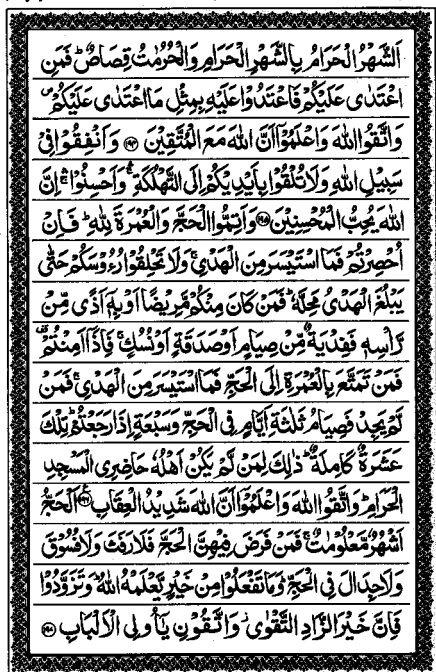 اَلشَّهْرُ الْحَرَامُ بِالشَّهْرِ الْحَرَامِ وَالْحُرُمٰتُ قِصَاصٌ ؕ فَمَنِ
اعْتَدٰى عَلَيْكُمْ فَاعْتَدُوْا عَلَيْهِ بِمِثْلِ مَا اعْتَدٰى عَلَيْكُمْ ۪
وَاتَّقُوا اللّٰهَ وَاعْلَمُوْۤا اَنَّ اللّٰهَ مَعَ الْمُتَّقِيْنَ ﴿۱۹۴﴾ وَاَنْفِقُوْا فِيْ
سَبِيْلِ اللّٰهِ وَلَا تُلْقُوْا بِاَيْدِيْكُمْ اِلَى التَّهْلُكَةِ ۛۚ وَاَحْسِنُوْا ۛۚ اِنَّ
اللّٰهَ يُحِبُّ الْمُحْسِنِيْنَ ﴿۱۹۵﴾ وَاَتِمُّوا الْحَجَّ وَالْعُمْرَةَ لِلّٰهِ ؕ فَاِنْ
اُحْصِرْتُمْ فَمَا اسْتَيْسَرَ مِنَ الْهَدْيِ ۚ وَلَا تَحْلِقُوْا رُءُوْسَكُمْ حَتّٰى
يَبْلُغَ الْهَدْيُ مَحِلَّهٗ ؕ فَمَنْ كَانَ مِنْكُمْ مَّرِيْضًا اَوْ بِهٖۤ اَذًى مِّنْ
رَّاْسِهٖ فَفِدْيَةٌ مِّنْ صِيَامٍ اَوْ صَدَقَةٍ اَوْ نُسُكٍ ۚ فَاِذَاۤ اَمِنْتُمْ ۥ
فَمَنْ تَمَتَّعَ بِالْعُمْرَةِ اِلَى الْحَجِّ فَمَا اسْتَيْسَرَ مِنَ الْهَدْيِ ۚ فَمَنْ
لَّمْ يَجِدْ فَصِيَامُ ثَلٰثَةِ اَيَّامٍ فِى الْحَجِّ وَسَبْعَةٍ اِذَا رَجَعْتُمْ ؕ تِلْكَ
عَشَرَةٌ كَامِلَةٌ ؕ ذٰلِكَ لِمَنْ لَّمْ يَكُنْ اَهْلُهٗ حَاضِرِى الْمَسْجِدِ
الْحَرَامِ ؕ وَاتَّقُوا اللّٰهَ وَاعْلَمُوْۤا اَنَّ اللّٰهَ شَدِيْدُ الْعِقَابِ ﴿۱۹۶﴾ اَلْحَجُّ
اَشْهُرٌ مَّعْلُوْمٰتٌ ۚ فَمَنْ فَرَضَ فِيْهِنَّ الْحَجَّ فَلَا رَفَثَ وَلَا فُسُوْقَ
وَلَا جِدَالَ فِى الْحَجِّ ؕ وَمَا تَفْعَلُوْا مِنْ خَيْرٍ يَّعْلَمْهُ اللّٰهُ ؔ وَتَزَوَّدُوْا
فَاِنَّ خَيْرَ الزَّادِ التَّقْوٰى ؗ وَاتَّقُوْنِ يٰۤاُولِى الْاَلْبَابِ ﴿۱۹۷﴾